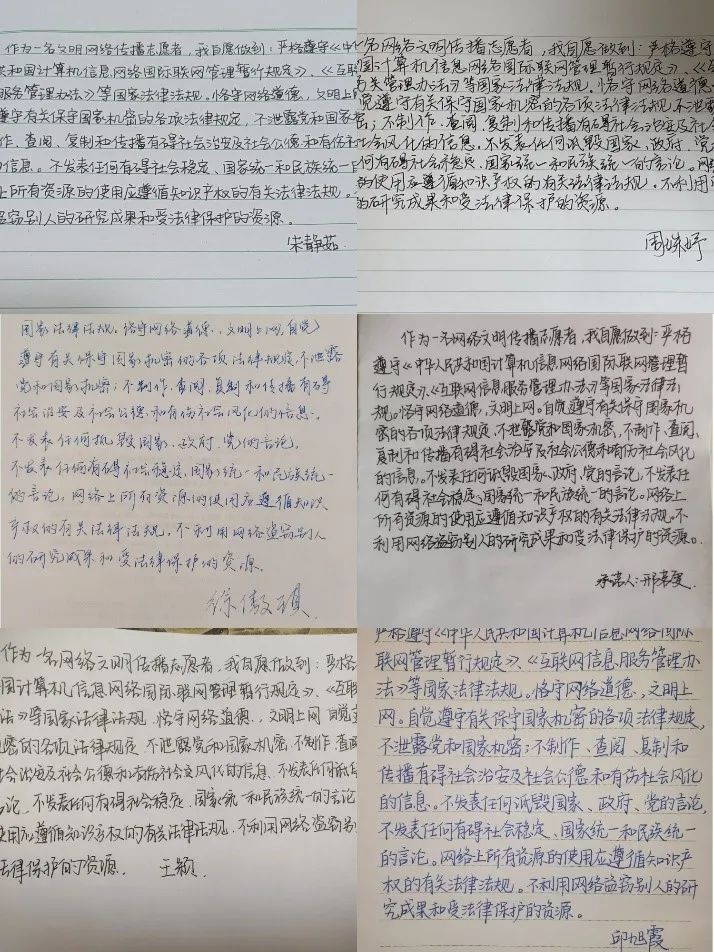 作为一名文明网络传播志愿者，我自愿做到：严格遵守《中
共和国计算机信息网络国际联网管理暂行规定》、《互联
服务管理办法》等国家法律法规。恪守网络道德，文明上网
遵守有关保守国家机密的各项法律规定，不泄露党和国家
作、查阅、复制和传播有碍社会治安及社会公德和有伤社
的信息。不发表任何有碍社会稳定、国家统一和民族统一
上所有资源的使用应遵循知识产权的有关法律法规。
盗窃别人的研究成果和受法律保护的资源。
宋静茹
名网络文明传播志愿者，我自愿做到：严格遵守
国计算机信息网络国际联网管理暂行规定》、《互
务管理办法》等国家法律法规。恪守网络道德
觉遵守有关保守国家机密的各项法律法规，不泄
密；不制作、查阅、复制和传播有碍社会治安及社会
会风化的信息。不发表任何诋毁国家、政府、党
何有碍社会稳定、国家统一和民族统一的言论。网
的使用应遵循知识产权的有关法律法规。不利用
的研究成果和受法律保护的资源。
国家法律法规。恪守网络道德，文明上网，自觉
遵守有关保守国家机密的各项法律规定，不泄露
党和国家机密；不制作、查阅、复制和传播有碍
社会治安及社会公德和有伤社会风化的信息。
不发表任何诋毁国家、政府、党的言论，
不发表任何有碍社会稳定、国家统一和民族统一
的言论。网络上所有资源的使用应遵循知识
产权的有关法律法规，不利用网络盗窃别人
的研究成果和受法律保护的资源。
徐傲
作为一个网络文明传播志愿者，我自愿做到：严格
遵守《中华人民共和国计算机信息网络国际联网管理暂
行规定》、《互联网信息服务管理办法》等国家法律法
规。恪守网络道德，文明上网。自觉遵守有关保守国家机
密的各项法律规定，不泄露党和国家机密，不制作、查阅、
复制和传播有碍社会治安及社会公德和有伤社会风化
的信息。不发表任何诋毁国家、政府、党的言论，不发表任
何有碍社会稳定、国家统一和民族统一的言论。网络上
所有资源的使用应遵循知识产权的有关法律法规。不
利用网络盗窃别人的研究成果和受法律保护的资源。
承诺人：邢
作为一名网络文明传播志愿者，我自愿做到：严格
国计算机信息网络国际联网管理暂行规定》、《互联
法》等国家法律法规，恪守网络道德，文明上网 自觉
密的各项法律规定，不泄露党和国家机密，不制作、查阅
会治安及社会公德和有伤社会文风化的信息、不发表任何诋
论，不发表任何有碍社会稳定、国家统一和民族统一的言论
使用应遵循知识产权的有关法律法规，不利用网络盗窃别
法律保护的资源， 王颖
严格遵守《中华人民共和国计算机信息网络国际
联网管理暂行规定》、《互联网信息服务管理办
法》等国家法律法规。恪守网络道德，文明上
网。自觉遵守有关保守国家机密的各项法律规定，
不泄露党和国家机密；不制作、查阅、复制和
传播有碍社会治安及社会公德和有伤社会风化
的信息。不发表任何诋毁国家、政府、党的言论，
不发表任何有碍社会稳定、国家统一和民族统一
的言论。网络上所有资源的使用应遵循知识产
权的有关法律法规。不利用网络盗窃别人的研
究成果和受法律保护的资源。
邱旭霞